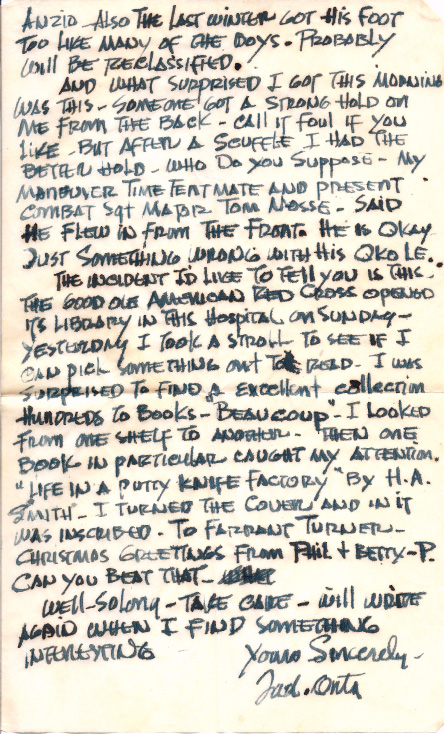 ANZIO - ALSO THE LAST WINTER GOT HIS FOOT
TOO LIKE MANY OF THE BOYS. PROBABLY
WILL BE RECLASSIFIED.
AND WHAT SURPRISED I GOT THIS MORNING
WAS THIS - SOMEONE GOT A STRONG HOLD ON
ME FROM THE BACK - CALL IT FOUL IF YOU
LIKE - BUT AFTER A SCUFFLE I HAD THE
BETTER HOLD - WHO DO YOU SUPPOSE - MY
MANEUVER TIME TENT MATE AND PRESENT
COMBAT SGT MAJOR TOM NOSSE - SAID
HE FLEW IN FROM THE FRONT. HE IS OKAY
JUST SOMETHING WRONG WITH HIS OKOLE.
THE INCIDENT I'D LIKE TO TELL YOU IS THIS -
THE GOOD OLE AMERICAN RED CROSS OPENED
ITS LIBRARY IN THIS HOSPITAL ON SUNDAY -
YESTERDAY I TOOK A STROLL TO SEE IF I
CAN PICK SOMETHING OUT TO READ. I WAS
SURPRISED TO FIND A EXCELLENT COLLECTION
HUNDREDS TO BOOKS - "BEAUCOUP" - I LOOKED
FROM ONE SHELF TO ANOTHER - THEN ONE
BOOK IN PARTICULAR CAUGHT MY ATTENTION.
"LIFE IN A PUTTY KNIFE FACTORY" BY H.A.
SMITH - I TURNED THE COVER AND IN IT
WAS INSCRIBED - TO FARRANT TURNER -
CHRISTMAS GREETINGS FROM PHIL + BETTY - P.
CAN YOU BEAT THAT -
WELL - SOLONG - TAKE CARE - WILL WRITE
AGAIN WHEN I FIND SOMETHING
INTERESTING
Yours Sincerely -